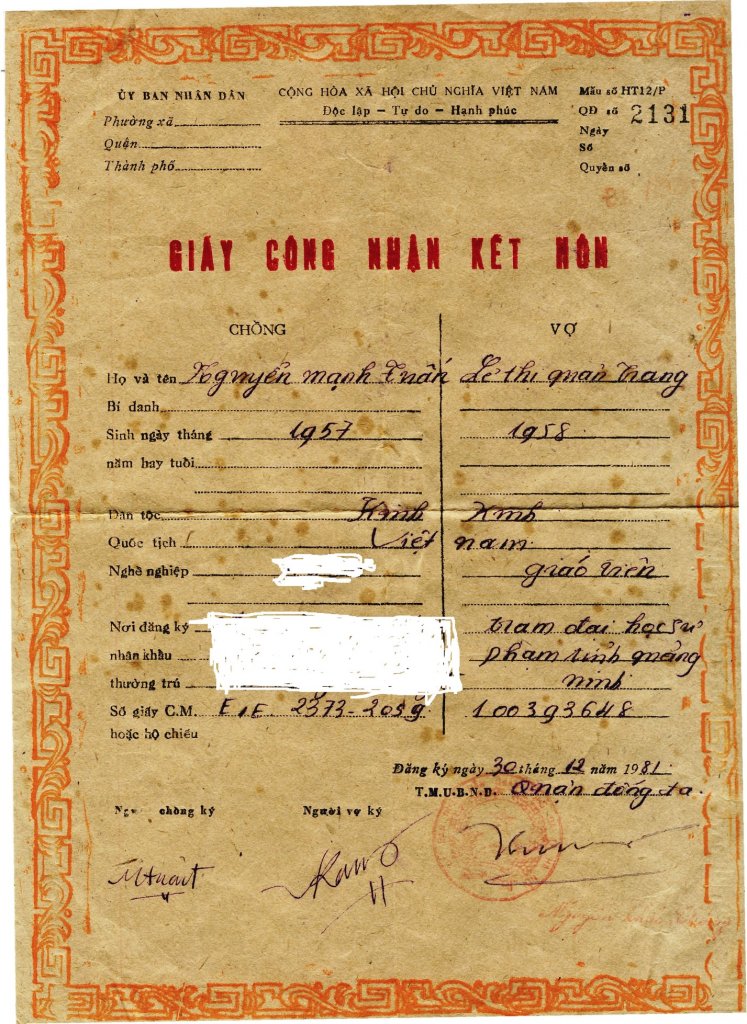 ỦY BAN NHÂN DÂN
Phường xã
Quận
Thành phố
CỘNG HÒA XÃ HỘI CHỦ NGHĨA VIỆT NAM
Độc lập — Tự do — Hạnh phúc
Mẫu số HT12/P
QĐ số 2131
Ngày
Số
Quyển số
GIẤY CÔNG NHẬN KẾT HÔN
CHỒNG VỢ
Họ và tên Nguyễn mạnh Tuấn Lê thị quản Trang
Bí danh
Sinh ngày tháng 1957 1958
năm hay tuổi
Dân tộc Kinh Kinh
Quốc tịch Việt nam
Nghề nghiệp giáo viên
Nơi đăng ký trạm đại học sư
nhân khẩu phạm tỉnh quảng
thường trú ninh
Số giấy C.M. E,E. 2373-2059 100393648
hoặc hộ chiếu
Đăng ký ngày 30 tháng 12 năm 1981
T.M.U.B.N.D. Quận đống đa
chồng ký Người vợ ký
Nguyễn